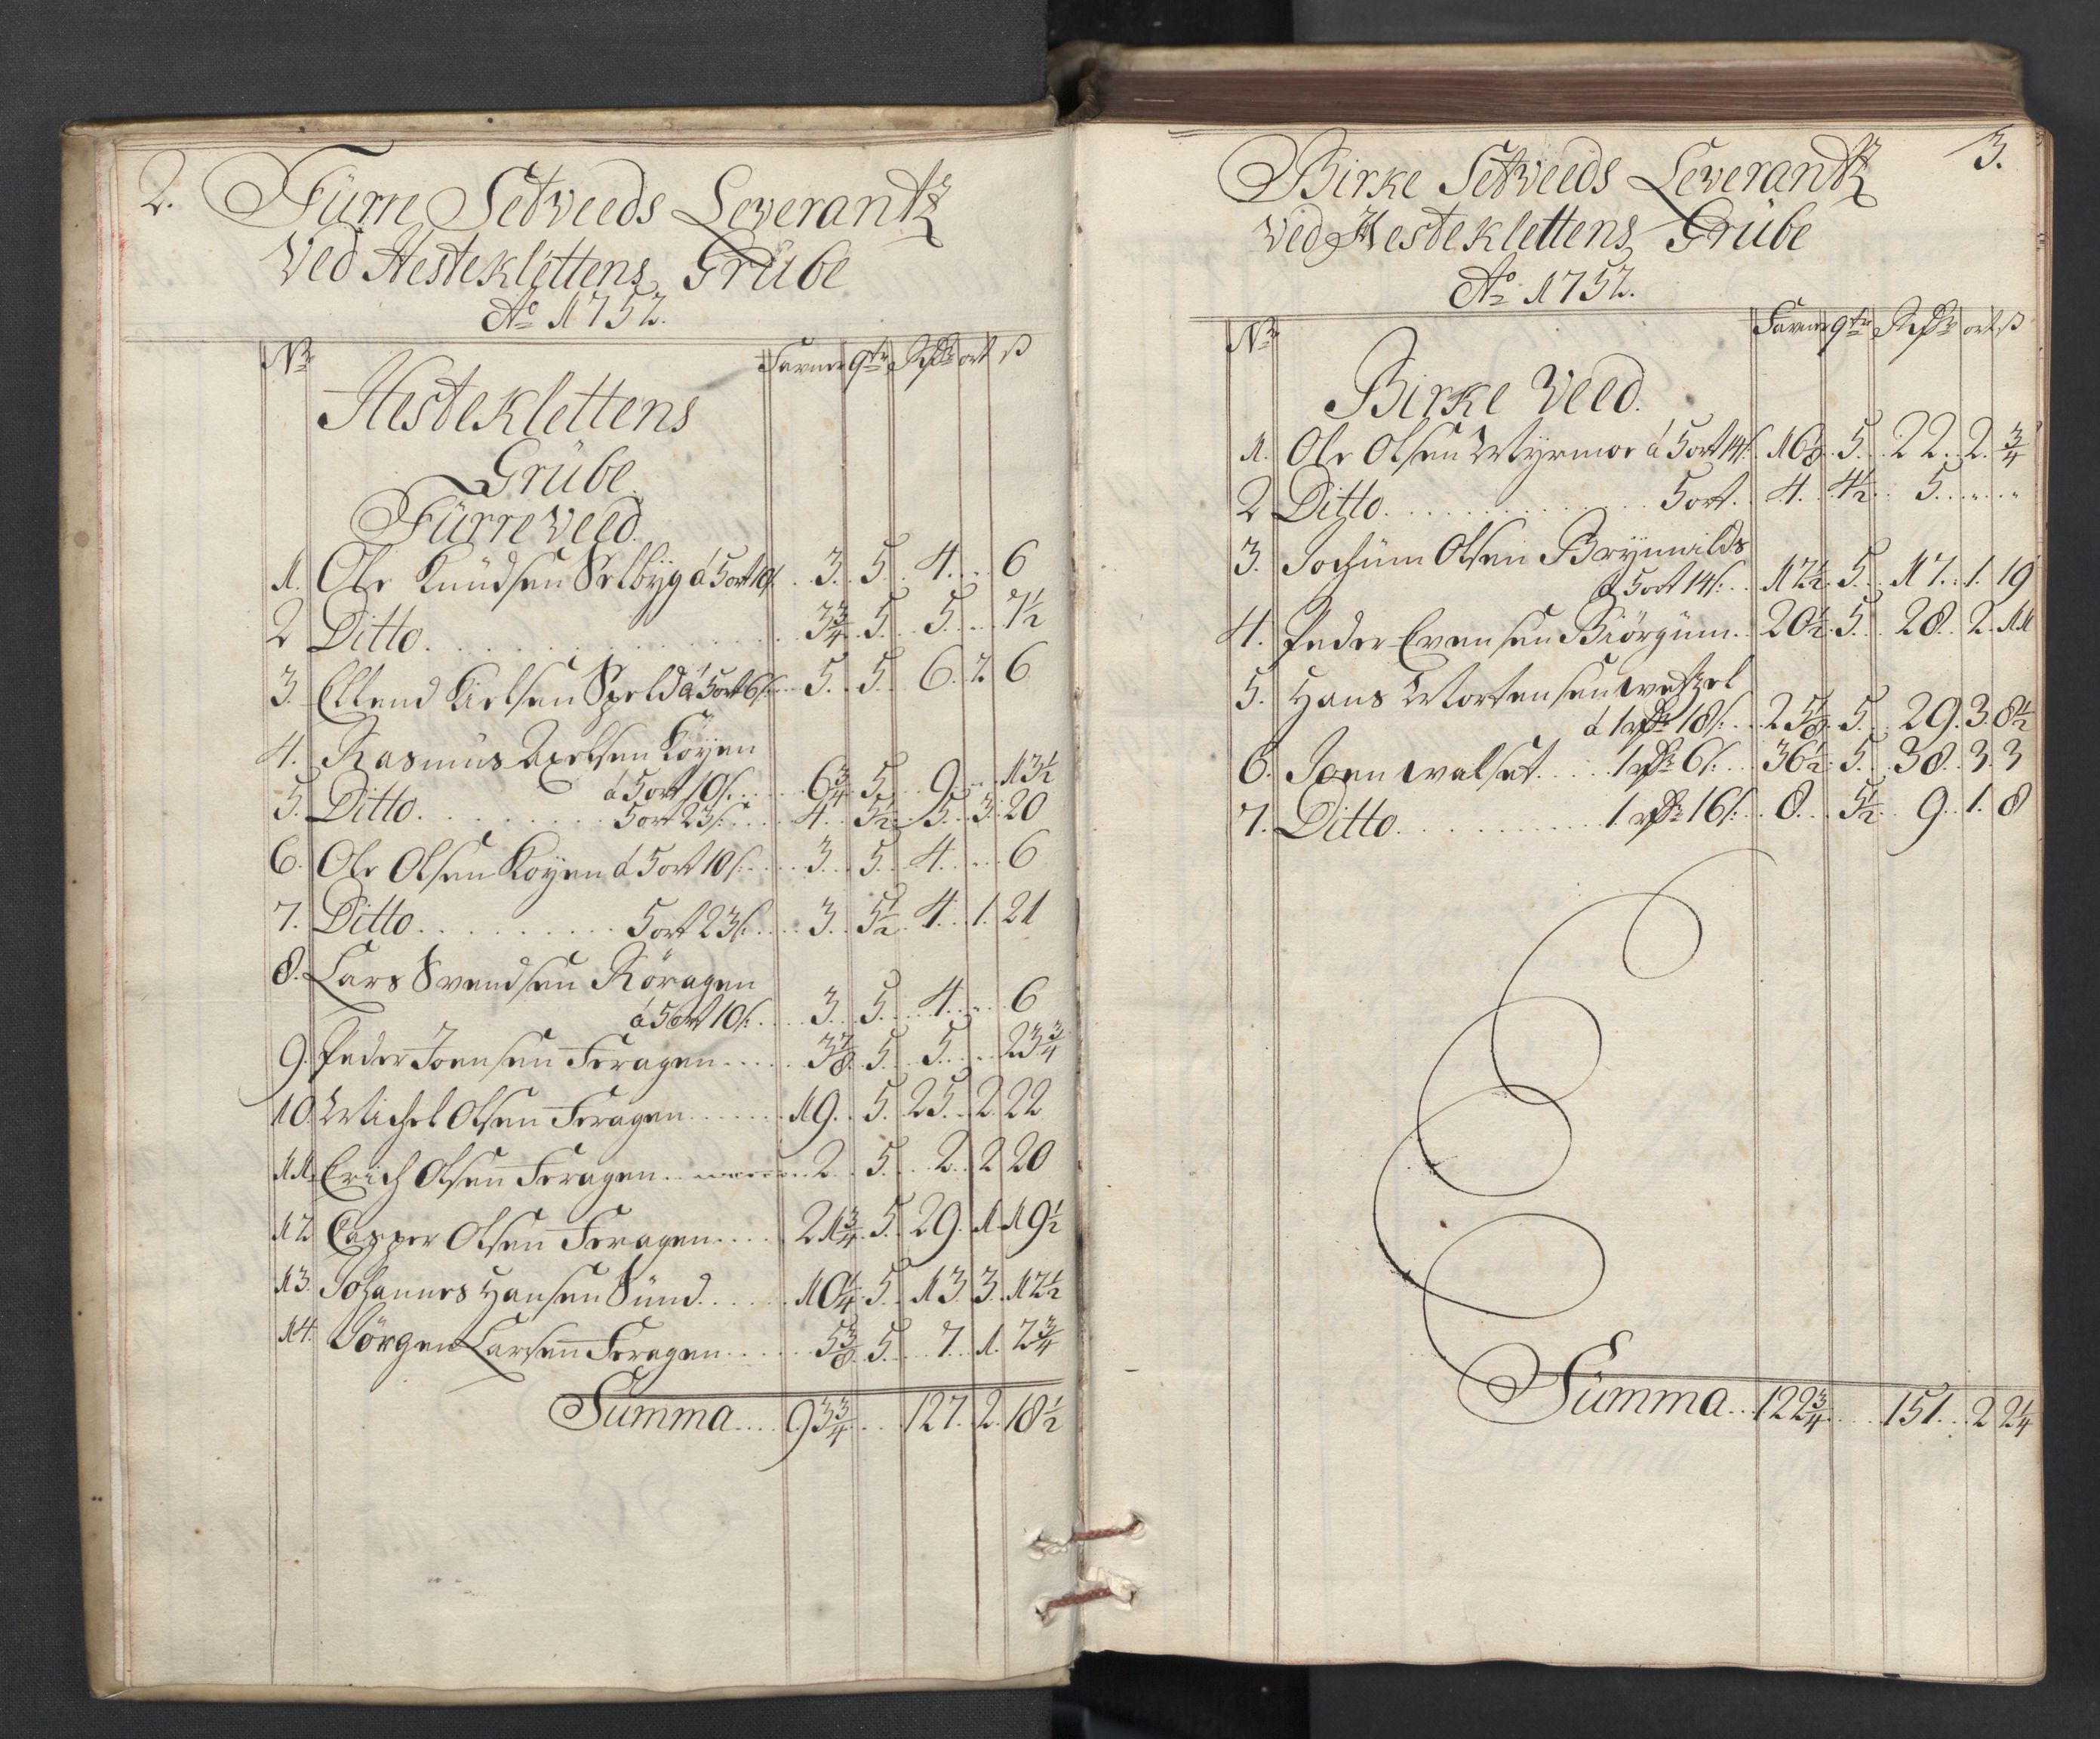 2.
Fürre Setveeds Leverantz
Ved Hesteklettens Grübe
Ao 1752.
No Favner qtr Rdr ort ß
Hesteklettens
Grübe
Fürre Veed.
1. Ole Knüdsen Selbÿg á 5 ort 10ß. 3. 5. 4. .. 6
2 Ditto. 3 3/4. 5. 5. .. 7 1/2
3. Ellend Kielsen Speld á 5 ort 6ß. 5. 5. 6. 2 6
4. Rasmus Axelsen Koÿen
á 5 ort 10ß. 6 3/4. 5. 9. .. 13 1/2
5. Ditto. 5 ort 23ß. 4. 5 1/2 5. 3. 20
6. Ole Olsen Koÿen á 5 ort 10ß. 3. 5. 4. .. 6
7. Ditto. 5 ort 23ß. 3. 5 1/2. 4. 1. 21
8. Lars Svendsen Röragen
á 5 ort 10ß. 3. 5. 4. .. 6
9. Peder Joensen Feragen. 3 7/8. 5. 5. .. 23 3/4
10. Michel Olsen Feragen. 19. 5. 25. 2. 22
11. Erich Olsen Feragen. 2. 5. 2. 2 20
12 Casper Olsen Feragen. 21 3/4. 5. 29. 1. 19 1/2
13. Johannes Hansen Sünd. 10 1/4. 5. 13. 3. 12 1/2
14. Jörgen Larsen Feragen. 5 3/8. 5. 7. 1. 2 3/4
Summa. 93 3/4. 127. 2. 18 1/2
3.
Birke Setveeds Leverantz
Ved Hesteklettens Grübe
Ao 1752.
No Favner qtr Rdr ort ß
Birke Veed.
1. Ole Olsen Myrmoe á 5 ort 14ß. 16 1/8. 5. 22. 2. 3/4
2 Ditto. 5 ort. 4. 4 1/2. 5. .. ..
3. Jochüm Olsen Brynnilds
á 5 ort 14ß. 12 1/2. 5. 17. 1. 19
4. Peder Evensen Biörgüm. 20 1/2. 5. 28. 2. 11
5. Hans Mortensen Wetzel
á 1 rdr 18ß. 25 1/8. 5. 29. 3. 8 1/2
6. Joen Walset. 1 rdr 6ß. 36 1/2. 5. 38. 3. 3
7. Ditto. 1 rdr 16ß. 8. 5 1/2. 9. 1. 8
Summa. 122 3/4. 151. 2 2 1/4